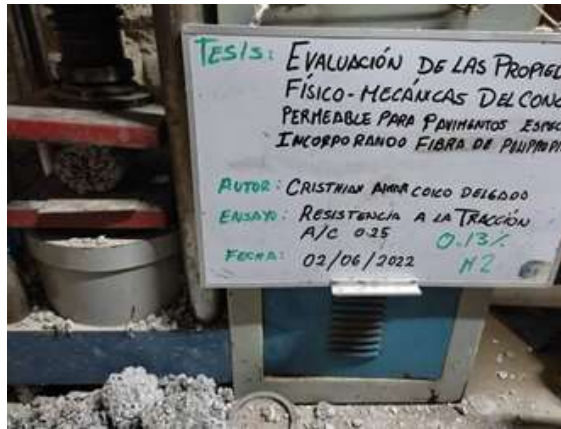 TESIS: EVALUACIÓN DE LAS PROPIED
FÍSICO-MECÁNICAS DEL CONC
PERMEABLE PARA PAVIMENTOS ESPEC
INCORPORANDO FIBRA DE POLIPROPI
AUTOR: CRISTHIAN COICO DELGADO
ENSAYO: RESISTENCIA A LA TRACCIÓN
A/C 0.25 0.13%
FECHA: 02/06/2022 M2